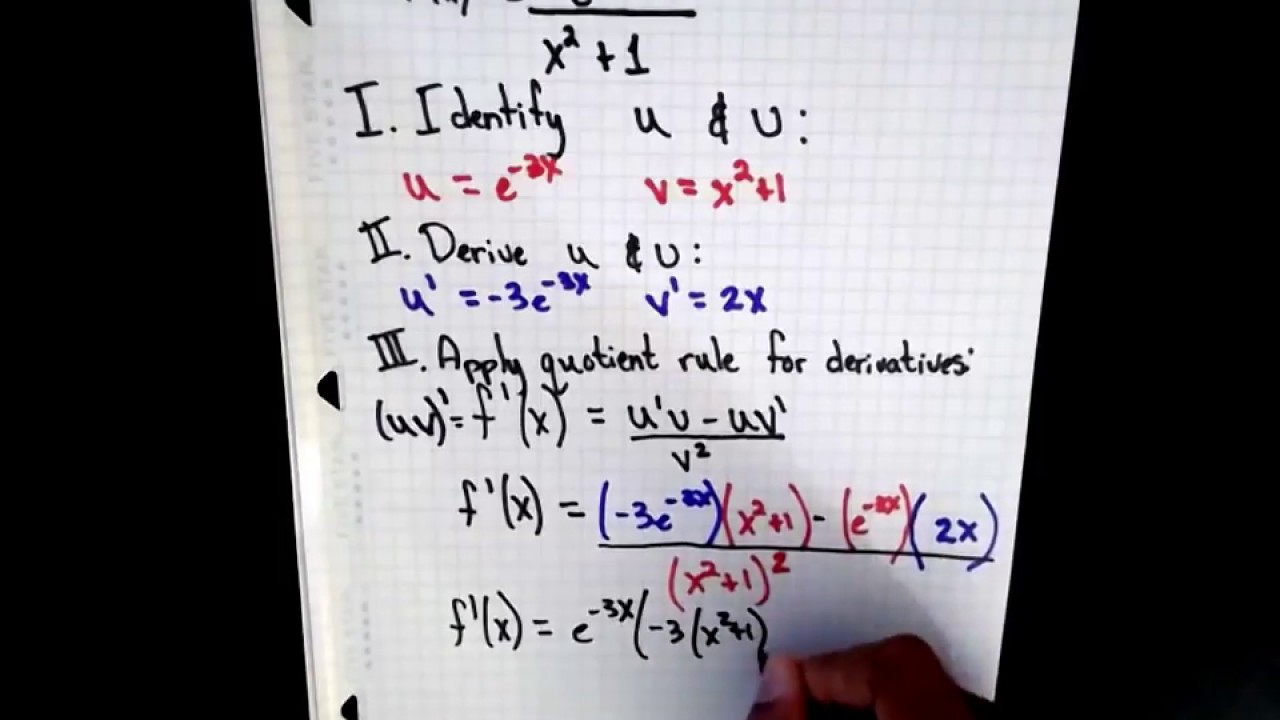 x² + 1
I. Identify u & v:
u = e^-3x v = x²+1
II. Derive u & v:
u' = -3e^-3x v' = 2x
III. Apply quotient rule for derivatives:
(uv)' = f'(x) = u'v - uv'
v²
f'(x) = (-3e^-3x)(x²+1) - (e^-3x)(2x)
(x²+1)²
f'(x) = e^-3x(-3(x²+1)
FIVE STAR